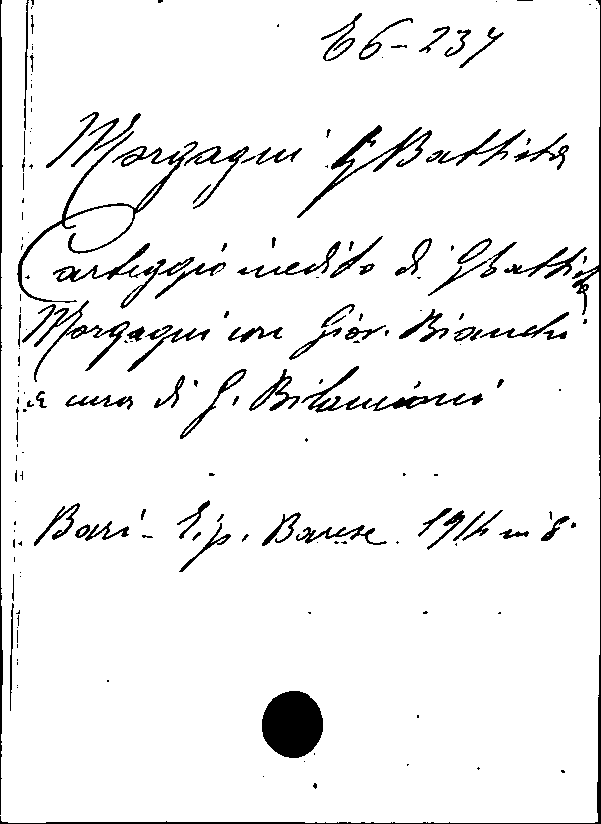 E6-237
Morgagni G Battista
Carteggio inedito di GBattista
Morgagni con Giov. Bianchi
a cura di G. Bilancioni
Bari - Tip. Barese 1914 in 8°